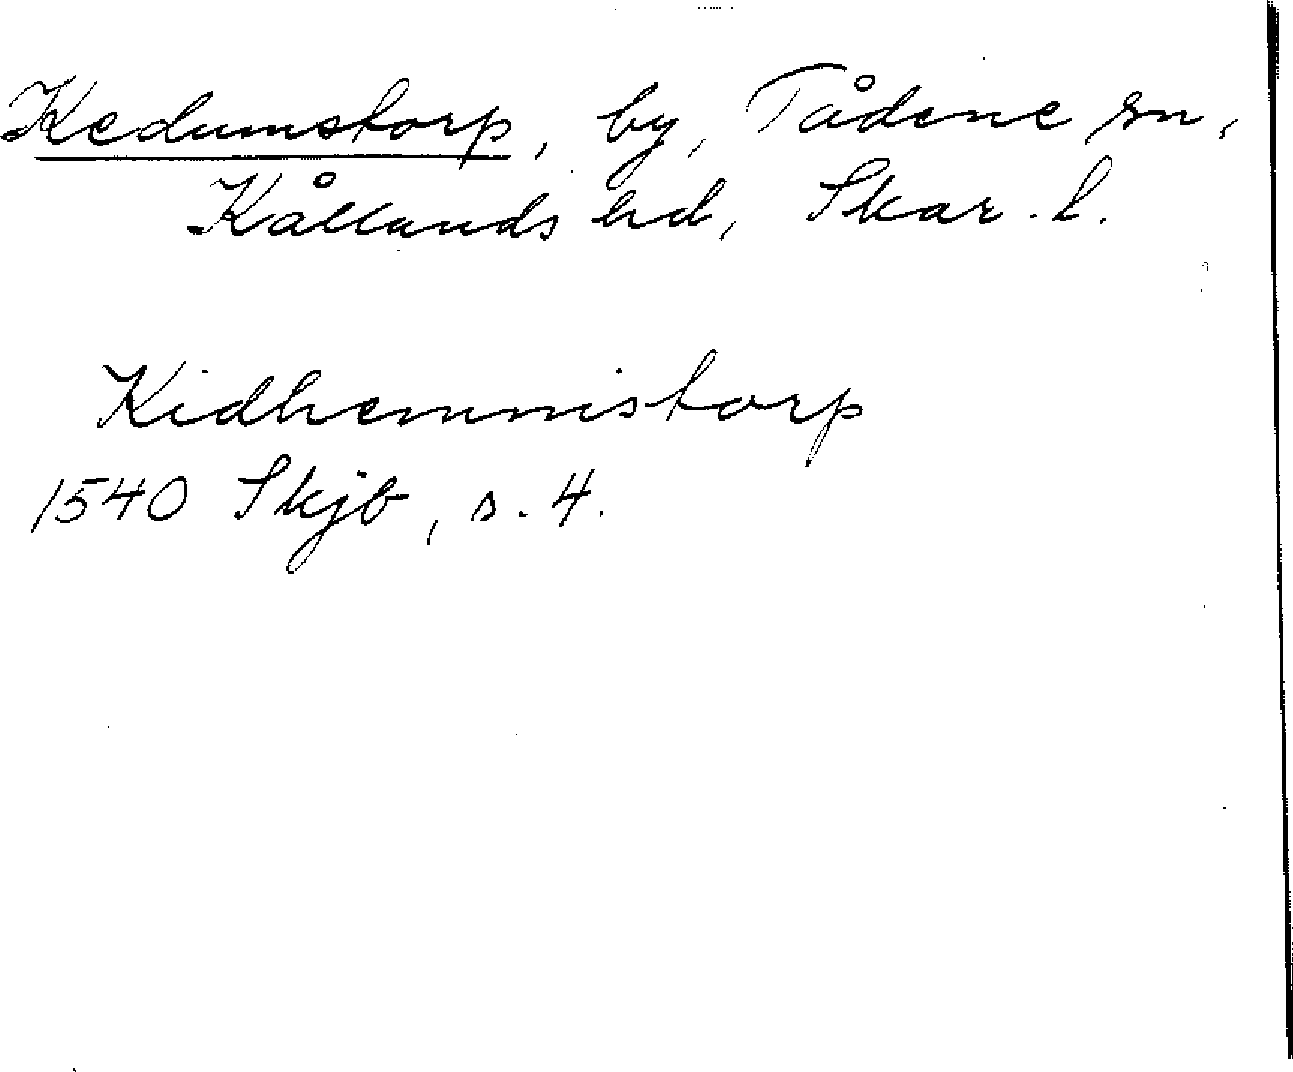 Kedumstorp, by, Tådene sn,
Kållands hd, Skar. l.
Kidhemmistorp
1540 Skjb, s. 4.